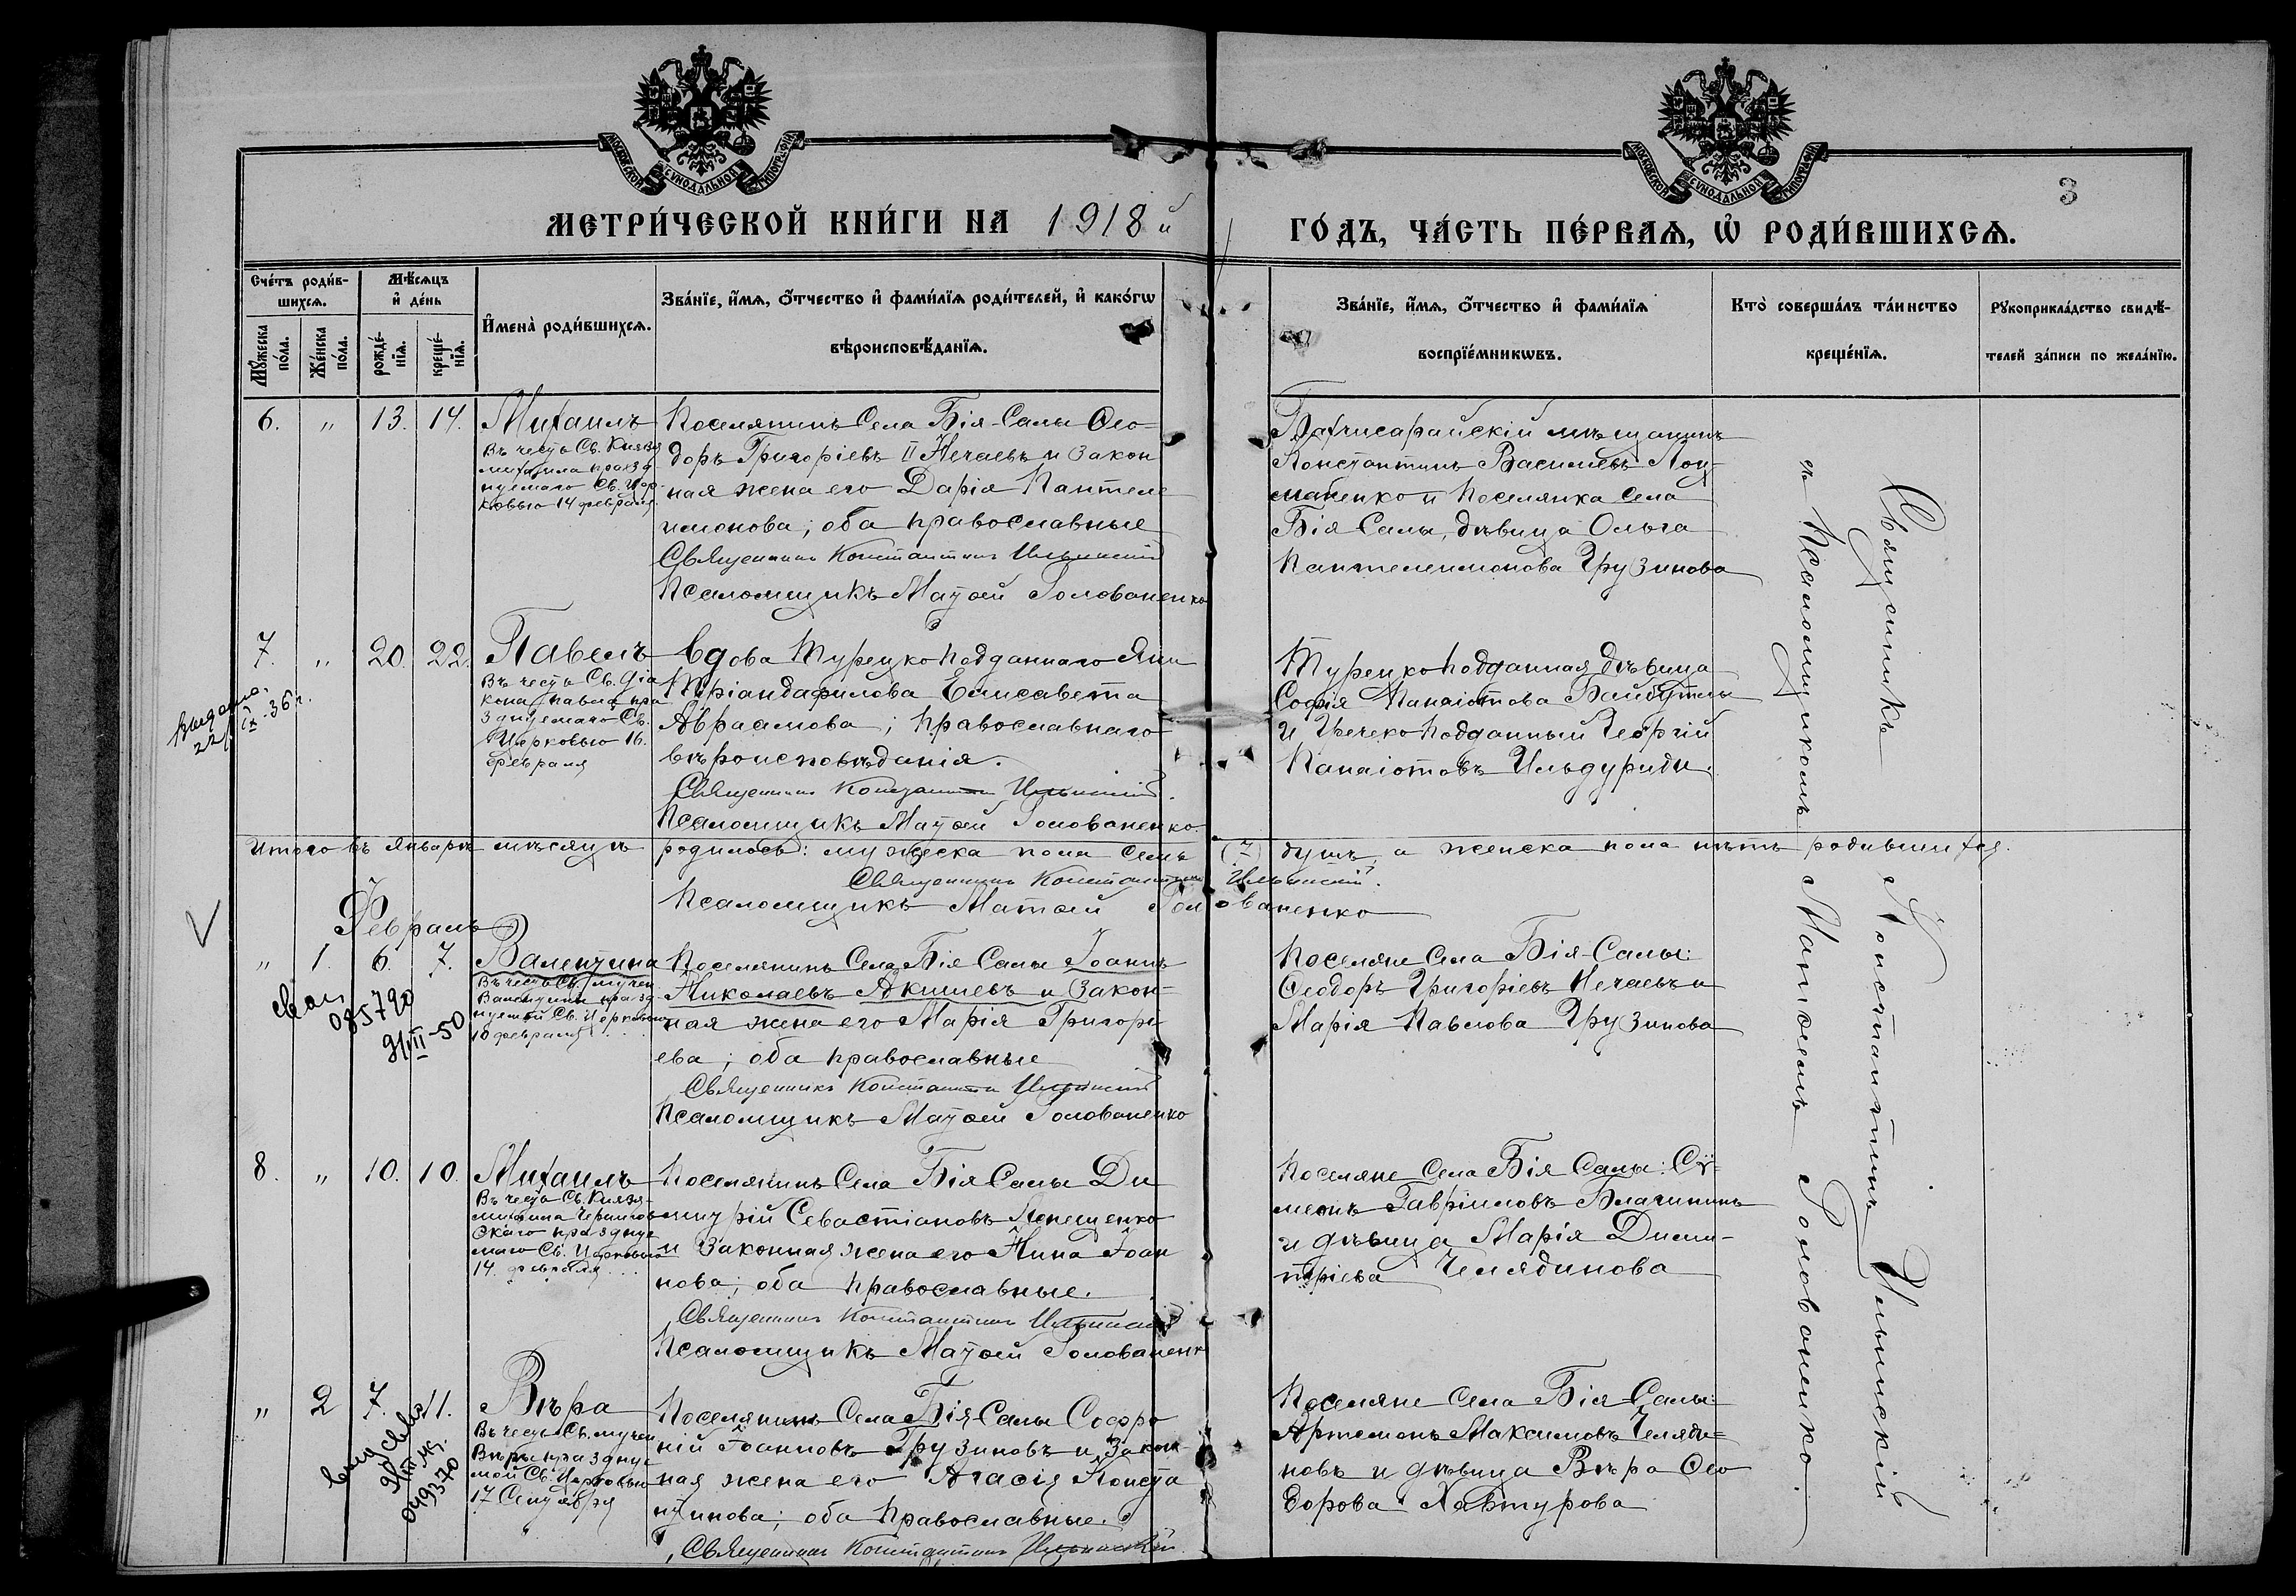 МОСКОВСКОЙ СУНОДАЛЬНОЙ ТИПОГРАФІИ
МОСКОВСКОЙ СУНОДАЛЬНОЙ ТИПОГРАФІИ
3
МЕТРИ́ЧЕСКОЙ КНИ́ГИ НА 1918й
ГО́ДЪ, ЧА́СТЬ ПЕ́РВАѦ, Ѡ҆ РОДИ́ВШИХСѦ.
Сче́тъ роди́в-
шихсѧ.
Мѣ́сѧцъ
и҆ де́нь
Мꙋ́жеска
по́ла.
Же́нска
по́ла.
рожде́-
нїѧ.
креще́-
нїѧ.
И҆мена̀ роди́вшихсѧ.
Зва́нїе, и҆́мѧ, ѻ҆́тчество и҆ фами́лїѧ роди́телей, и҆ како́гѡ
вѣроисповѣ́данїѧ.
Зва́нїе, и҆́мѧ, ѻ҆́тчество и҆ фами́лїѧ
воспрїе́мникѡвъ.
Кто̀ соверша́лъ та́инство
креще́нїѧ.
Рꙋкоприкла́дство свидѣ́-
телей за́писи по жела́нїю.
6. " 13. 14. Михаилъ
Въ честь Св. Князя
Михаила празд-
нуемаго Св. Цер-
ковью 14 февраля.
Поселянинъ Села Бія-Салы Ѳео-
доръ Григоріевъ II Нечаевъ и закон
ная жена его Дарія Пантеле
имонова; оба православные
Священникъ Константинъ Ильинскій
Псаломщикъ Матѳей Голованенко
Бахчисарайскій мѣщанинъ
Константинъ Васильевъ
и Поселянка Села
Бія Салы, дѣвица Ольга
Пантелеимонова Грузинова
7. " 20. 22. Павелъ
Въ честь Св. Діа
кона Павла пра
зднуемаго Св.
Церковью 16.
февраля
Вдова Турецкоподданнаго Яни
Тріандафилова Елисавета
Авраамова; православнаго
вѣроисповѣданія.
Священникъ Константинъ Ильинскій.
Псаломщикъ Матѳей Голованенко.
Турецкоподданная дѣвица
Софія Панаіотова
и Грекоподданный Георгій
Панаіотовъ Ильдуриди.
Выдано.
22/IX-36г.
Итого въ Январѣ мѣсяцѣ родилось: мужеска пола семь (7) душъ, а женска пола нѣтъ родившихся.
Священникъ Константинъ Ильинскій.
Псаломщикъ Матѳей Голованенко
Февраль
" 1. 6. 7. Валентина
Въ честь Св. мучен
Валентины празд
нуемой Св. Церковью
10 февраля
Поселянинъ Села Бія Салы Іоаннъ
Николаевъ Акишевъ и закон-
ная жена его Марія Григорі-
ева; оба православные
Священникъ Константинъ Ильинскій
Псаломщикъ Матѳей Голованенко
Поселяне Села Бія-Салы:
Ѳеодоръ Григоріевъ Нечаевъ и
Марія Павлова Грузинова
085790
VII-50
8. " 10. 10. Михаилъ
Въ честь Св. Князя
Михаила Чернигов
скаго празднуе
маго Св. Церковью
14. февраля
Поселянинъ Села Бія Салы Ди
митрій Севастіановъ Лепещенко
и законная жена его Нина Іоан
нова; оба православные.
Священникъ Константинъ Ильинскій
Псаломщикъ Матѳей Голованенк
Поселяне Села Бія Салы: Сѵ-
меонъ Гавріиловъ Благининъ
и дѣвица Марія Дими-
тріева Челядинова
" 2 7. 11. Вѣра
Въ честь Св. мучен
Вѣры празднуе
мой Св. Церковью
17 Сентября
Поселянинъ Села Бія-Салы Софро
ній Іоанновъ Грузиновъ и Закон
ная жена его Агаѳія Конста
нтинова; оба православные.
Священникъ Константинъ Ильинскій
Поселяне Села Бія-Салы:
Артемонъ Максимовъ Челяди-
новъ и дѣвица Вѣра Ѳео
дорова Хавтурова
049370
Священникъ Константинъ Ильинскій
съ Псаломщикомъ Матѳеемъ Голованенко.